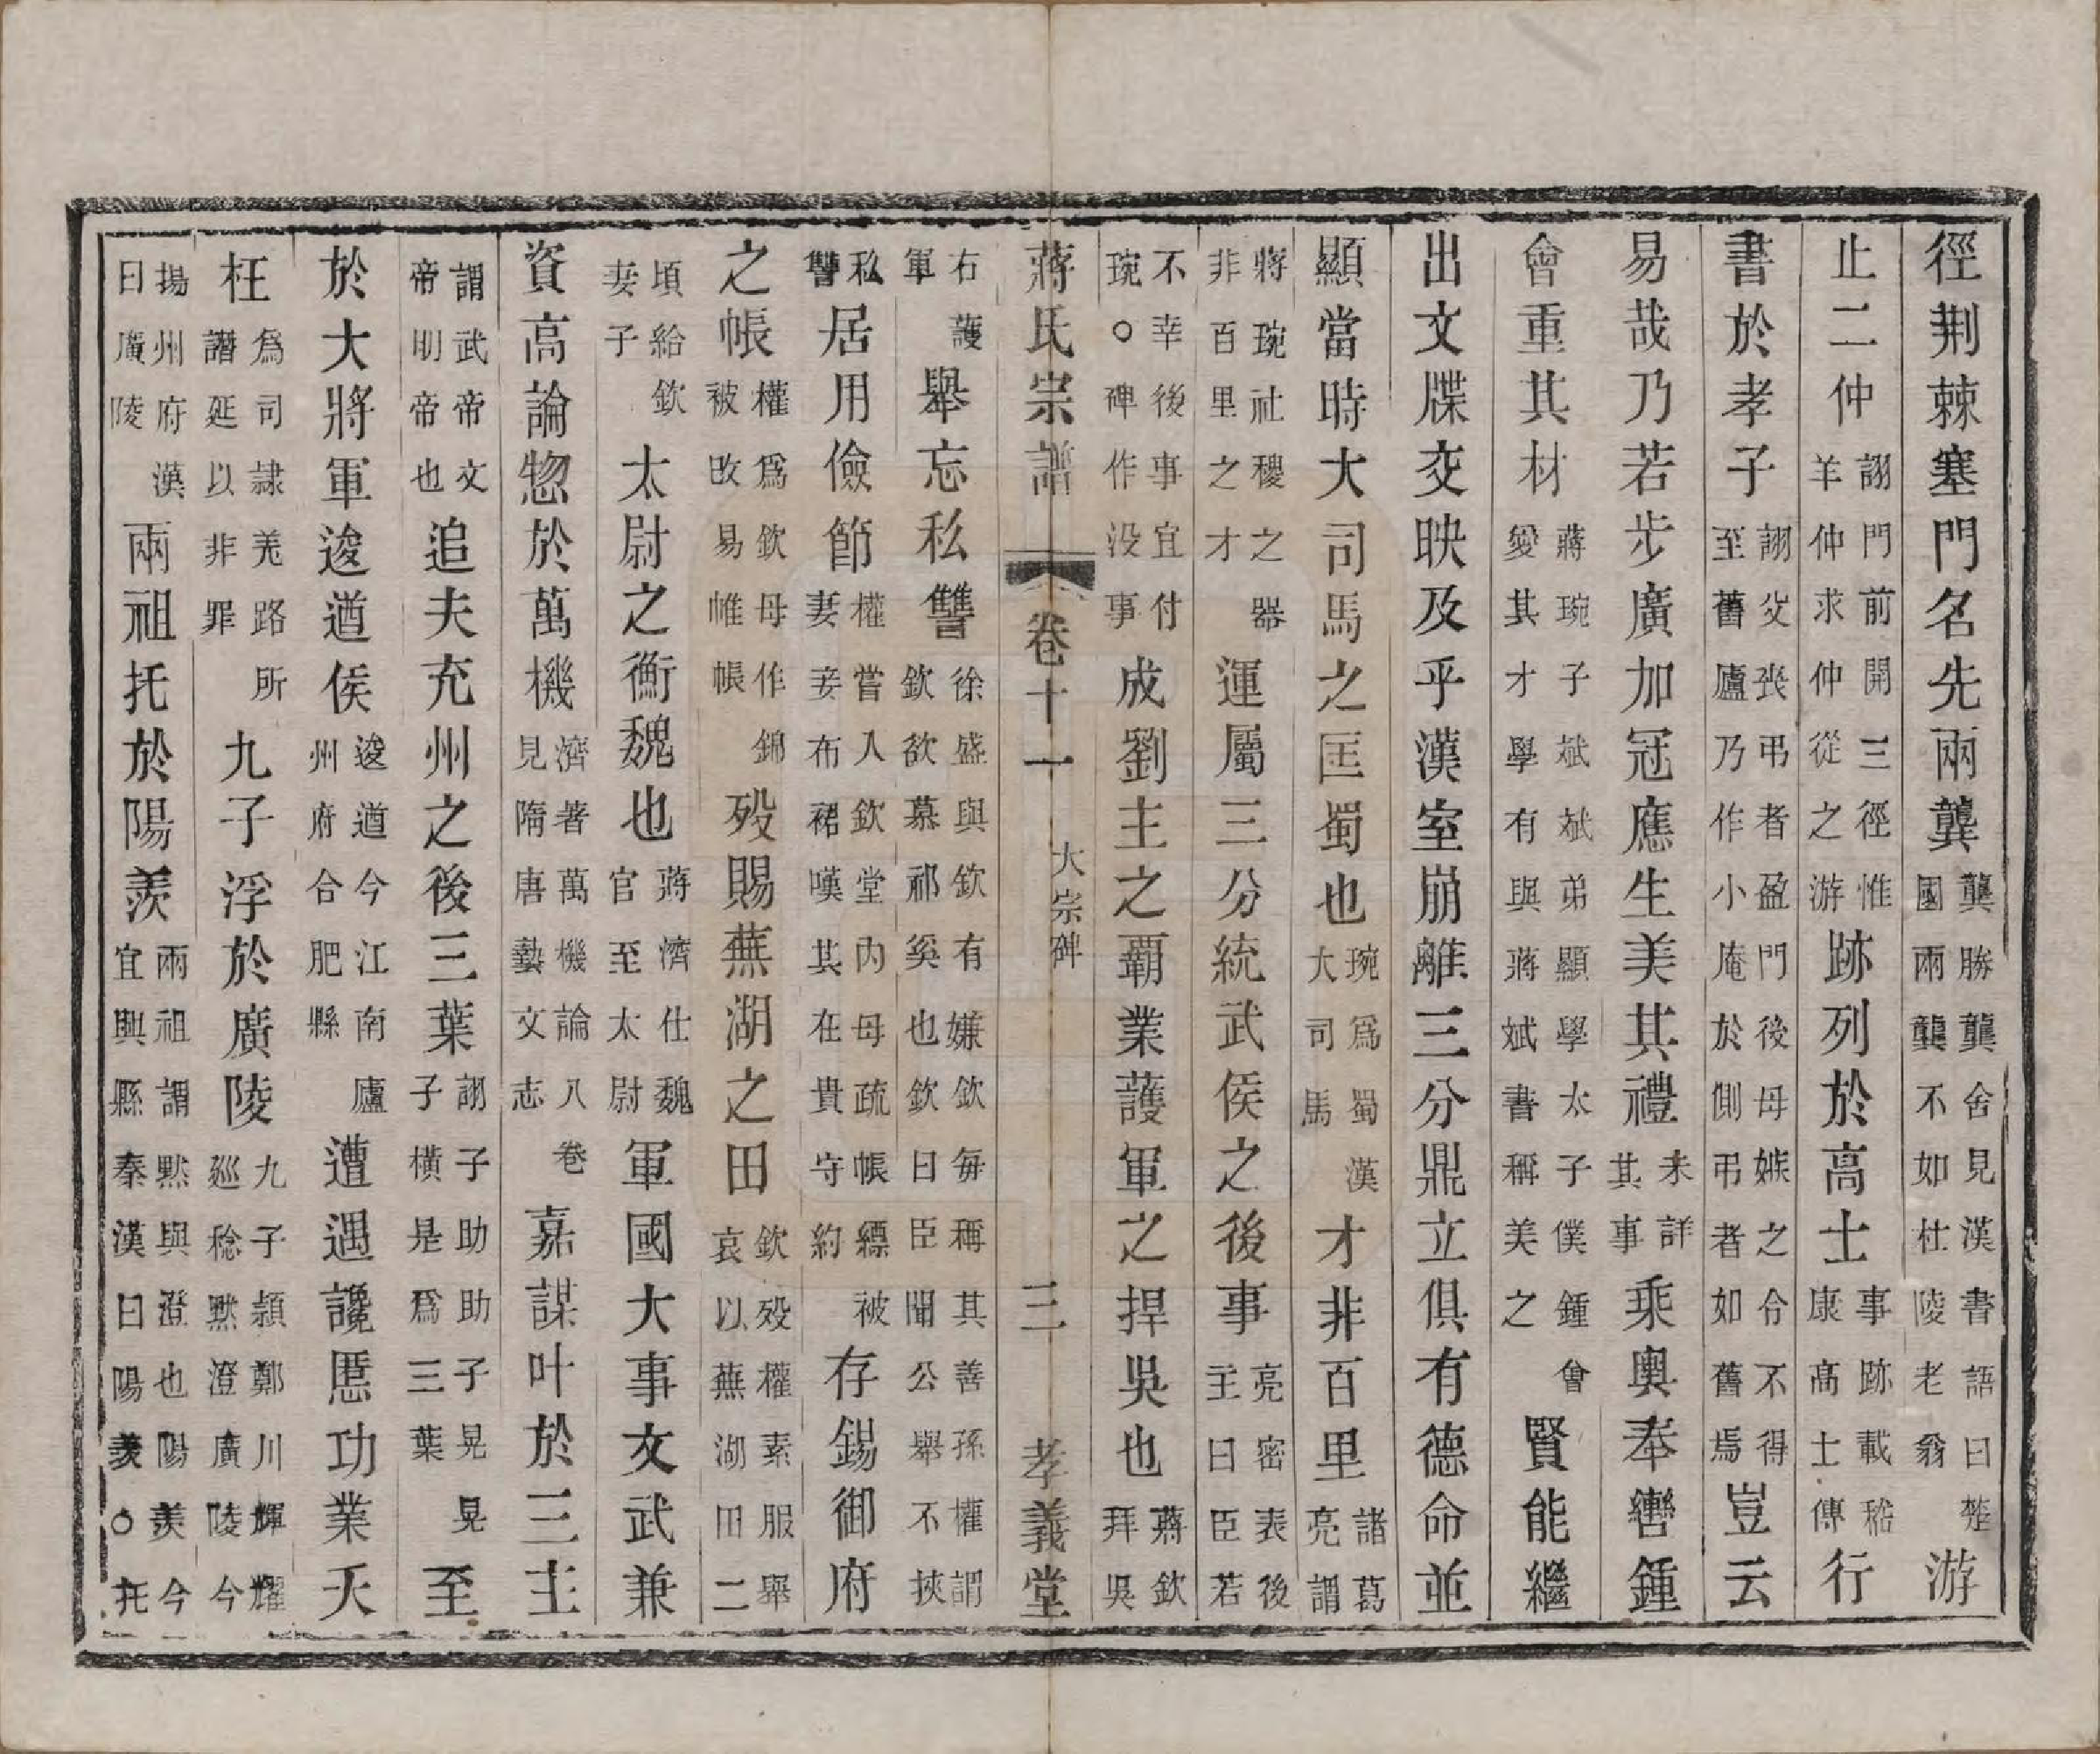 徑荆棘塞門名先兩龔龔勝龔舍見漢書語曰楚國兩龔不如杜陵老翁游
止二仲詡門前開三徑惟羊仲求仲從之游跡列於高士事跡載嵇康高士傳行
書於孝子詡父喪弔者盈門後母嫉之令不得至舊廬乃作小庵於側弔者如舊焉豈云
易哉乃若步廣加冠應生美其禮未詳其事乘輿奉轡鍾
會重其材蔣琬子斌斌弟顯學太子僕鍾會愛其才學有與蔣斌書稱美之賢能繼
出文牒交映及乎漢室崩離三分鼎立俱有德命並
顯當時大司馬之匡蜀也琬爲蜀漢大司馬才非百里諸葛亮謂
蔣琬社稷之器非百里之才運屬三分統武侯之後事亮密表後主曰臣若
不幸後事宜付琬○碑作没事成劉主之霸業護軍之捍吳也蔣欽拜吳
蔣氏宗譜 卷十一 大宗碑 三 孝義堂
右護軍舉忘私讐徐盛與欽有嫌欽每稱其善孫權謂欽欲慕祁奚也欽曰臣聞公舉不挾
私讐居用儉節權嘗入欽堂内母疏帳縹被妻妾布裙嘆其在貴守約存錫御府
之帳權爲欽母作錦被改易帷帳殁賜蕪湖之田欽殁權素服舉哀以蕪湖田二
頃給欽妻子太尉之衡魏也蔣濟仕魏官至太尉軍國大事文武兼
資高論惣於萬機濟著萬機論八卷見隋唐藝文志嘉謀叶於三主
謂武帝文帝明帝也追夫充州之後三葉詡子子助助子晃晃子橫是爲三葉至
於大將軍逡遒侯逡遒今江南廬州府合肥縣遭遇讒慝功業夭
枉爲司隸羌路所譖延以非罪九子浮於廣陵九子頴鄭川輝耀巡稔默澄廣陵今
揚州府漢曰廣陵兩祖托於陽羨兩祖謂默與澄也陽羨今宜興縣秦漢曰陽羨○托